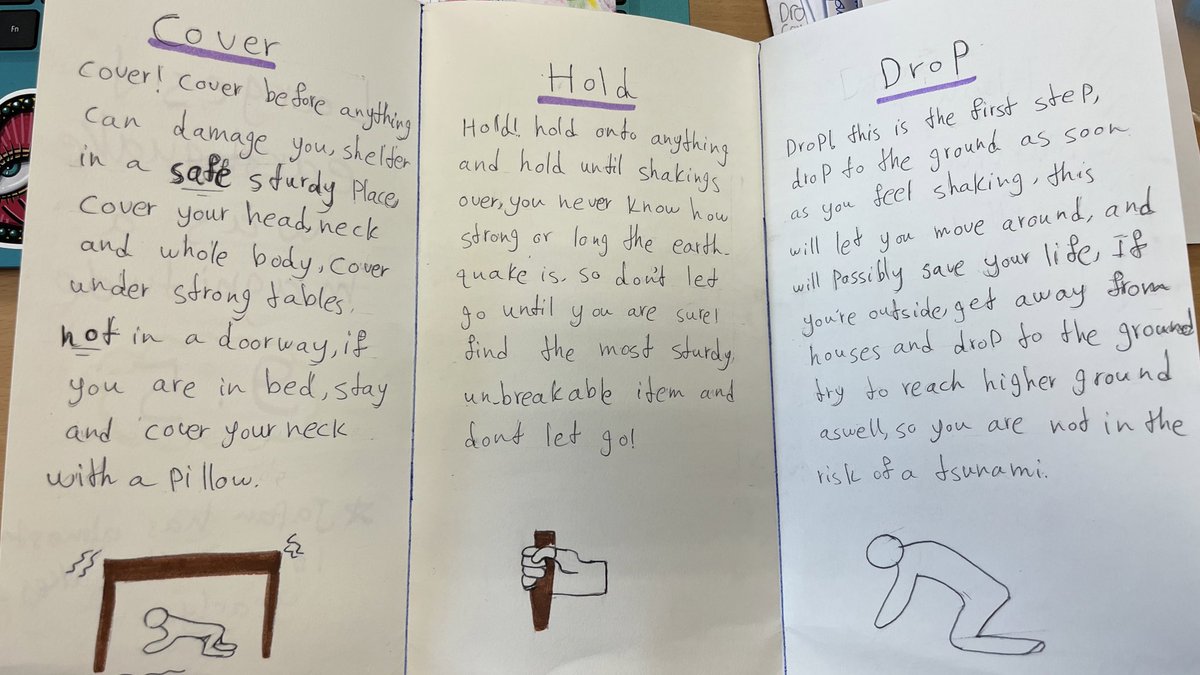 Fn
Cover
Cover! Cover before anything
can damage you, shelter
in a safe sturdy place,
cover your head, neck
and whole body, cover
under strong tables.
not in a doorway, if
you are in bed, stay
and cover your neck
with a pillow.
Hold
Hold! hold onto anything
and hold until shakings
over, you never know how
strong or long the earth-
quake is. so don't let
go until you are sure!
find the most sturdy
un-breakable item and
dont let go!
Drop
Drop! this is the first step,
drop to the ground as soon
as you feel shaking, this
will let you move around, and
will possibly save your life, If
you're outside, get away from
houses and drop to the ground
try to reach higher ground
aswell, so you are not in the
risk of a tsunami.